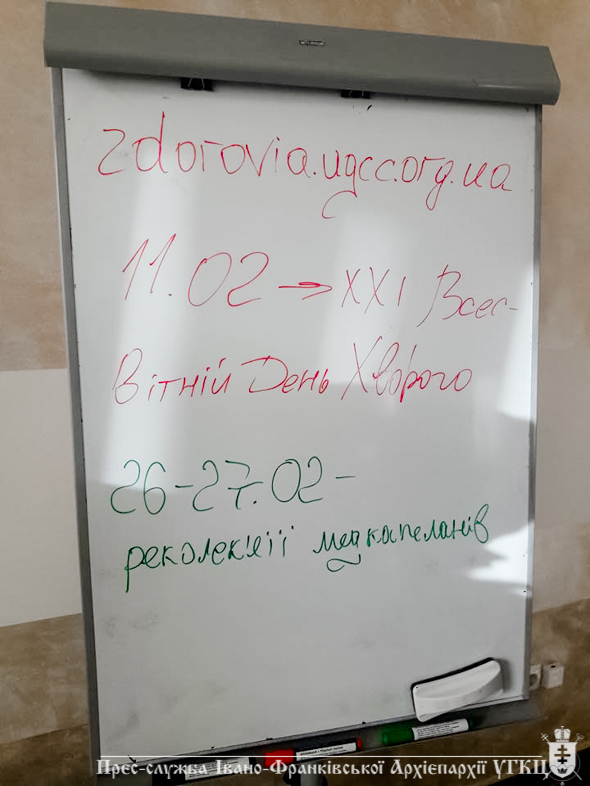 zdorovia.ugcc.org.ua
11.02 → XXI Всес-
вітній День Хворого
26-27.02 -
реколекції медкапеланів
Прес-служба Івано-Франківської Архієпархії УГКЦ